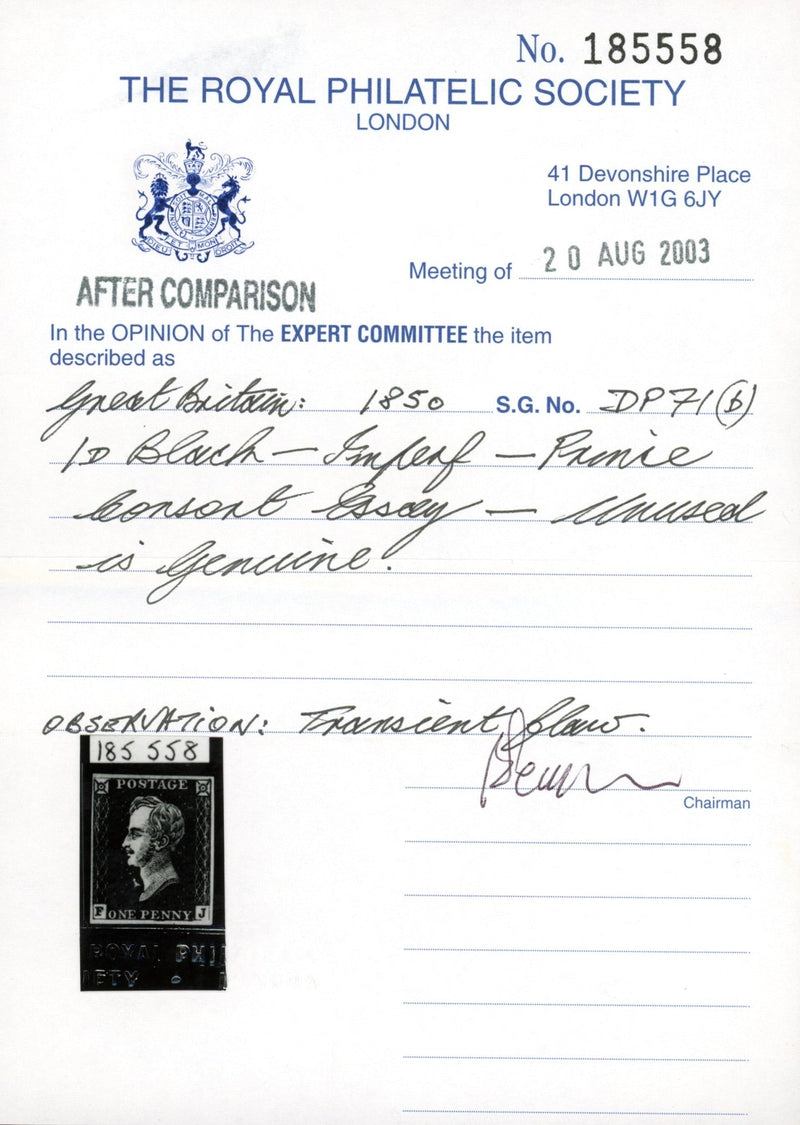 No. 185558
THE ROYAL PHILATELIC SOCIETY
LONDON
41 Devonshire Place
London W1G 6JY
DIEU ET MON DROIT
Meeting of 20 AUG 2003
AFTER COMPARISON
In the OPINION of The EXPERT COMMITTEE the item
described as
Great Britain: 1850 S.G. No. DP71(b)
1D Black – Imperf – Prince
Consort Essay – Unused
is Genuine.
OBSERVATION: Transient flaw.
Chairman
185 558
POSTAGE
F ONE PENNY J
ROYAL PHI
ETY • L